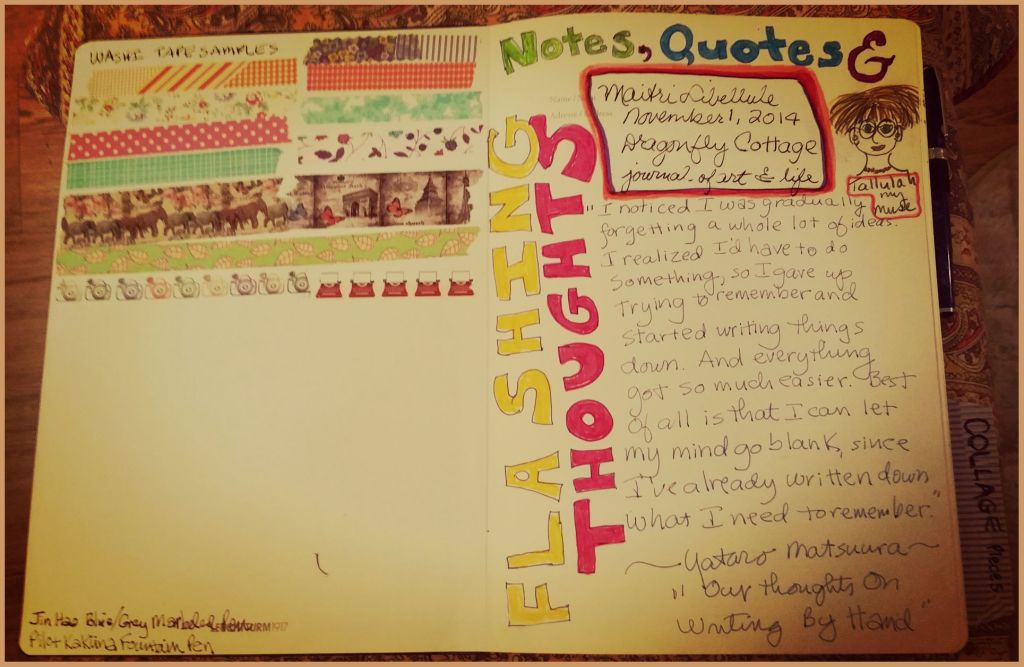 WASHI TAPE SAMPLES
Jin Hao Blue/Grey Marbled Pen
LEUCHTTURM1917
Pilot Kakuna Fountain Pen
Notes, Quotes &
FLASHING
THOUGHTS
Maitri Libellule
November 1, 2014
Dragonfly Cottage
journal of art & life
Tallulah
my
muse
"I noticed I was gradually
forgetting a whole lot of ideas.
I realized I'd have to do
something, so I gave up
trying to remember and
started writing things
down. And everything
got so much easier. Best
of all is that I can let
my mind go blank, since
I've already written down
what I need to remember."
~Yataro Matsuura~
"Our thoughts On
Writing By Hand"
COLLAGE PAGES